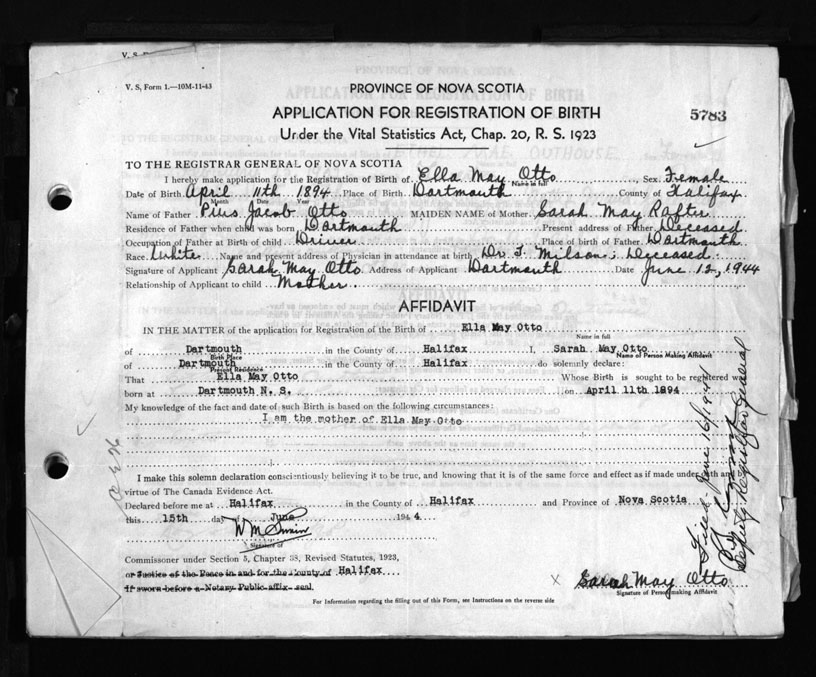 V. S. Form 1.—10M-11-43
PROVINCE OF NOVA SCOTIA
APPLICATION FOR REGISTRATION OF BIRTH
5783
Under the Vital Statistics Act, Chap. 20, R. S. 1923
TO THE REGISTRAR GENERAL OF NOVA SCOTIA
I hereby make application for the Registration of Birth of Ella May Otto Sex Female
Name in full
Date of Birth April 11th 1894 Place of Birth Dartmouth County of Halifax
Month Date Year
Name of Father Pius Jacob Otto MAIDEN NAME of Mother Sarah May Rafter
Residence of Father when child was born Dartmouth Present address of Father Deceased
Occupation of Father at Birth of child Driver Place of birth of Father Dartmouth
Race White Name and present address of Physician in attendance at birth Dr. T. Milsom; Deceased
Signature of Applicant Sarah May Otto Address of Applicant Dartmouth Date June 12, 1944
Relationship of Applicant to child Mother
AFFIDAVIT
IN THE MATTER of the application for Registration of the Birth of Ella May Otto
Name in full
of Dartmouth in the County of Halifax I, Sarah May Otto
Birth Place Name of Person Making Affidavit
of Dartmouth in the County of Halifax do solemnly declare:
Present Residence
That Ella May Otto Whose Birth is sought to be registered was
born at Dartmouth N. S. on April 11th 1894
My knowledge of the fact and date of such Birth is based on the following circumstances:
I am the mother of Ella May Otto
I make this solemn declaration conscientiously believing it to be true, and knowing that it is of the same force and effect as if made under oath and
virtue of The Canada Evidence Act.
Declared before me at Halifax in the County of Halifax and Province of Nova Scotia
this 15th day of June 1944
Signature of
Commissioner under Section 5, Chapter 38, Revised Statutes, 1923,
or Justice of the Peace in and for the County of Halifax
if sworn before a Notary Public affix seal.
x Sarah May Otto
Signature of Person making Affidavit
For Information regarding the filling out of this Form, see Instructions on the reverse side
Filed June 16/1944
Deputy Registrar General